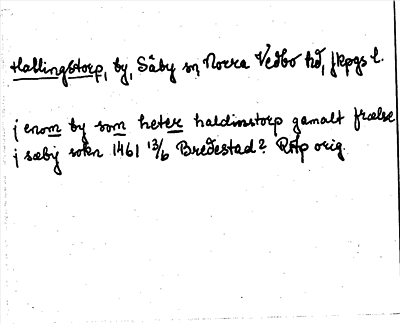 Hallingstorp, by, Säby sn, Norra Vedbo hd, Jkpgs l.
j enom by som heter haldinstorp gamalt frælse
j sæby sokn 1461 13/6 Bredestad? RAp orig.